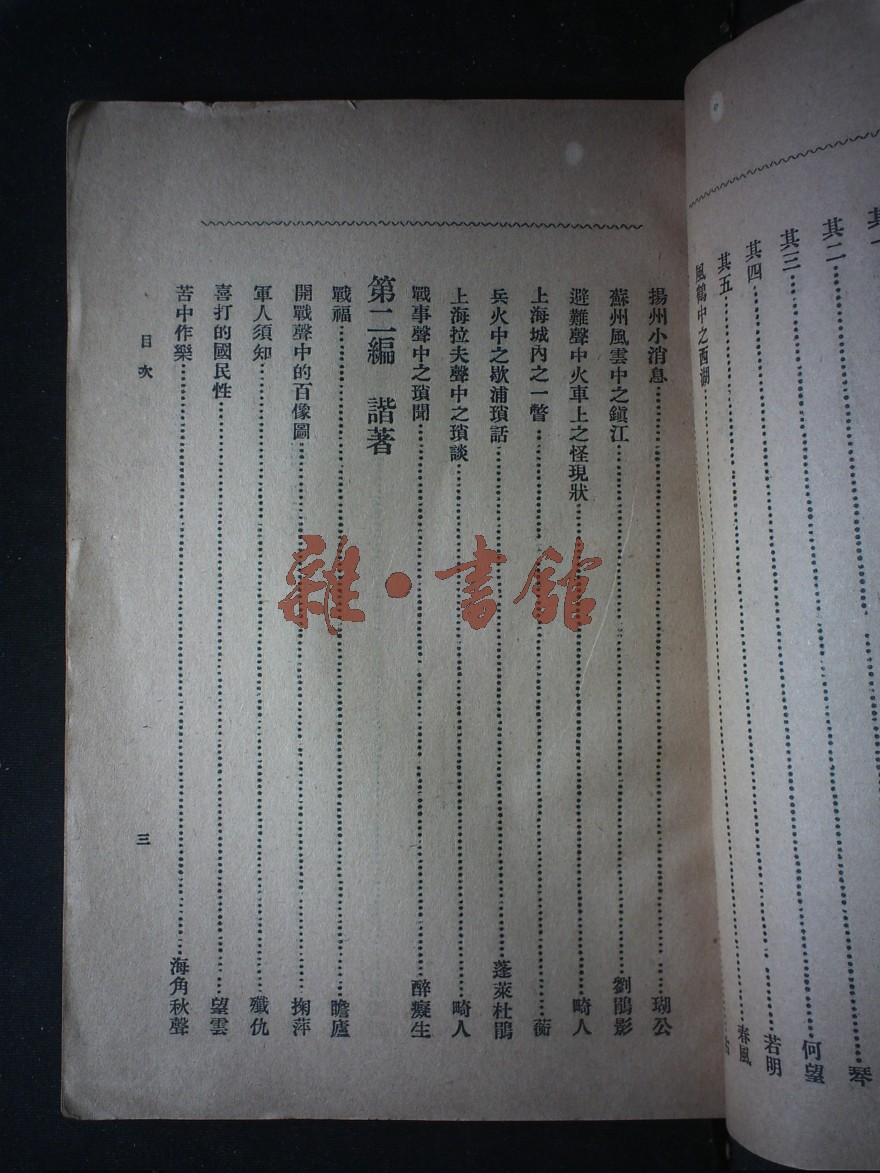 其二……何望
其三……若明
其四……春風
其五
風鶴中之西湖
揚州小消息……瑚公
蘇州風雲中之鎮江……劉鵑影
避難聲中火車上之怪現狀……畸人
上海城內之一瞥……蘅
兵火中之歇浦瑣話……蓬萊杜鵑
上海拉夫聲中之瑣談……畸人
戰事聲中之瑣聞……醉癡生
第二編　諧著
戰福……瞻廬
開戰聲中的百像圖……掬萍
軍人須知……殲仇
喜打的國民性……望雲
苦中作樂……海角秋聲
目次
三
雜·書館